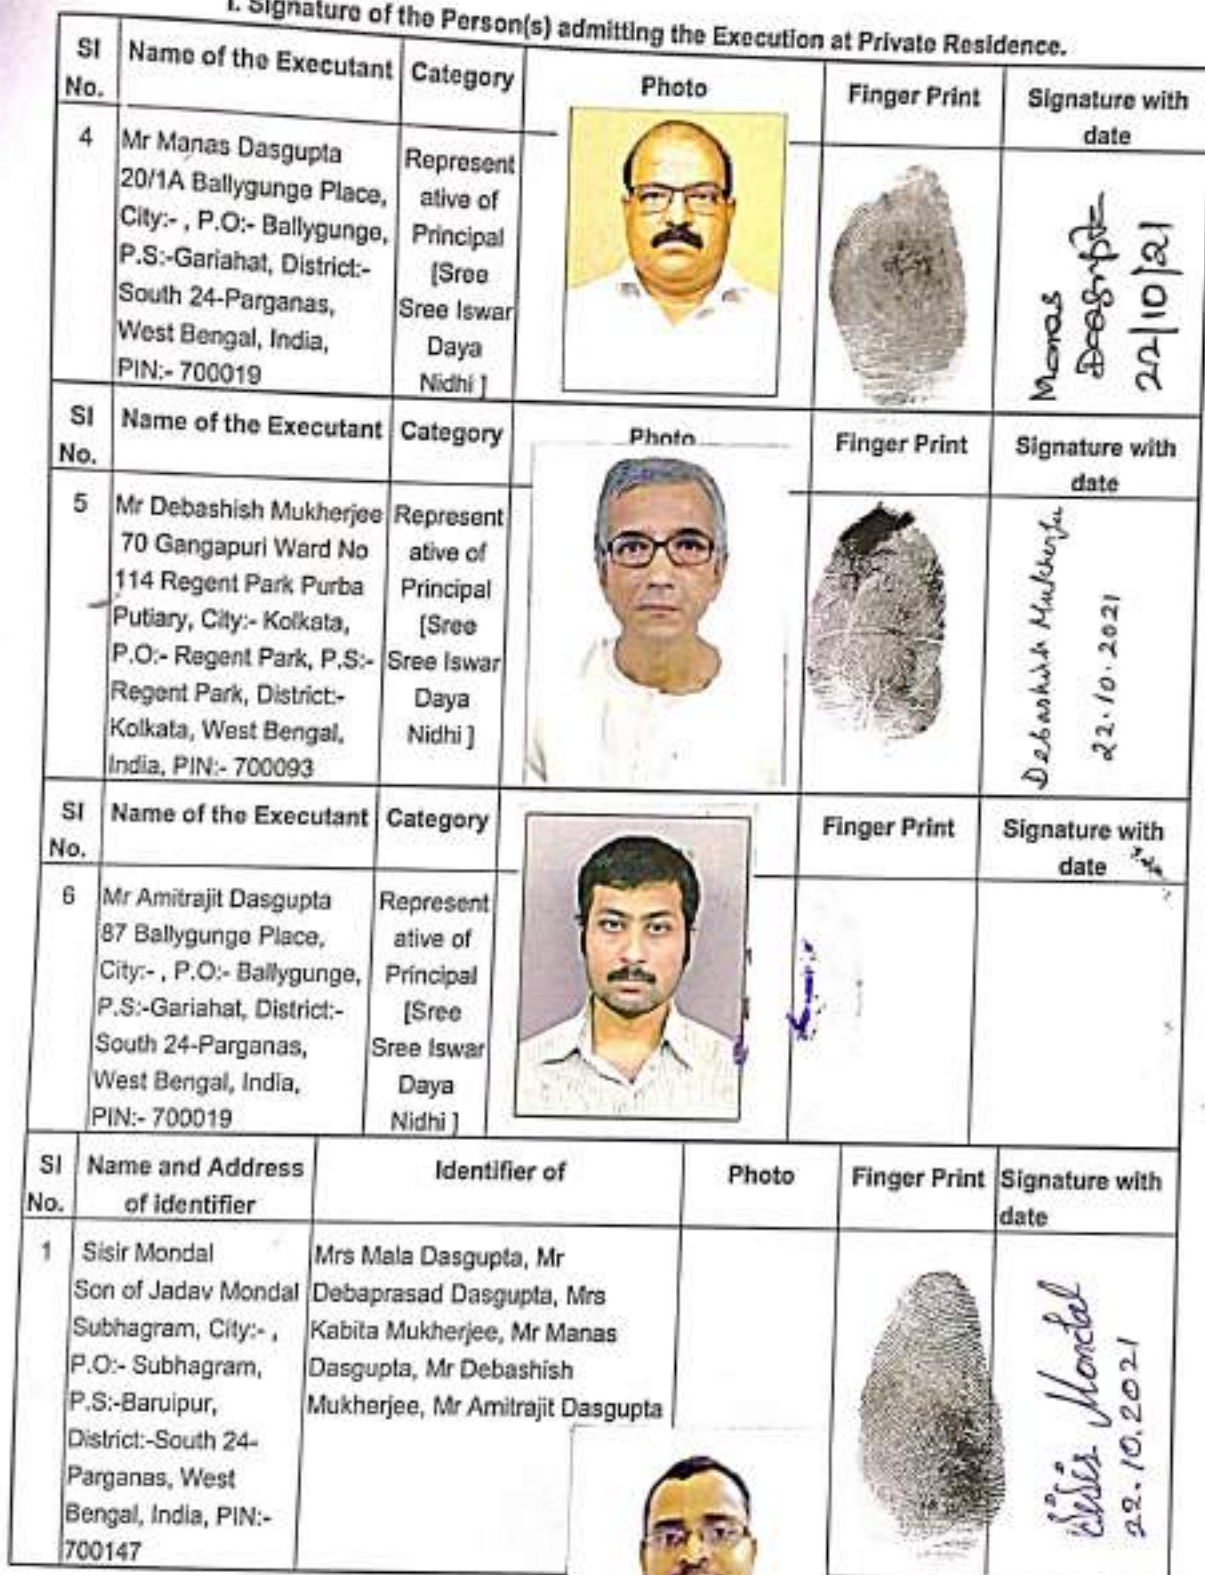 I. Signature of the Person(s) admitting the Execution at Private Residence.
Sl No. Name of the Executant Category Photo Finger Print Signature with date
4
Mr Manas Dasgupta
20/1A Ballygunge Place,
City:- , P.O:- Ballygunge,
P.S:-Gariahat, District:-
South 24-Parganas,
West Bengal, India,
PIN:- 700019
Represent
ative of
Principal
[Sree
Sree Iswar
Daya
Nidhi ]
Manas
Dasgupta
22/10/21
Sl No. Name of the Executant Category Photo Finger Print Signature with date
5
Mr Debashish Mukherjee
70 Gangapuri Ward No
114 Regent Park Purba
Putiary, City:- Kolkata,
P.O:- Regent Park, P.S:-
Regent Park, District:-
Kolkata, West Bengal,
India, PIN:- 700093
Represent
ative of
Principal
[Sree
Sree Iswar
Daya
Nidhi ]
Debashish Mukherjee
22.10.2021
Sl No. Name of the Executant Category Finger Print Signature with date
6
Mr Amitrajit Dasgupta
87 Ballygunge Place,
City:- , P.O:- Ballygunge,
P.S:-Gariahat, District:-
South 24-Parganas,
West Bengal, India,
PIN:- 700019
Represent
ative of
Principal
[Sree
Sree Iswar
Daya
Nidhi ]
Sl No. Name and Address of identifier Identifier of Photo Finger Print Signature with date
1
Sisir Mondal
Son of Jadav Mondal
Subhagram, City:- ,
P.O:- Subhagram,
P.S:-Baruipur,
District:-South 24-
Parganas, West
Bengal, India, PIN:-
700147
Mrs Mala Dasgupta, Mr
Debaprasad Dasgupta, Mrs
Kabita Mukherjee, Mr Manas
Dasgupta, Mr Debashish
Mukherjee, Mr Amitrajit Dasgupta
Sisir Mondal
22.10.2021